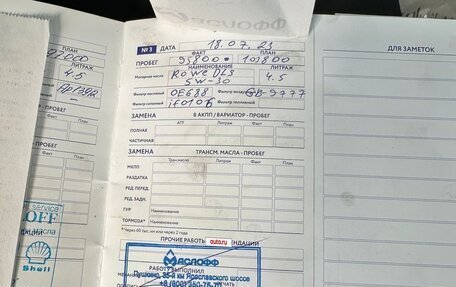 МАСЛОФФ
№ 3 ДАТА 18.07.23
ФАКТ ПЛАН
ПРОБЕГ 95800 103800
НАИМЕНОВАНИЕ ЛИТРАЖ
Моторное масло ROWE DLS 4.5
5W-30
Фильтр масляный OE688 Фильтр воздушный GB-9777
Фильтр салонный Фильтр топливный
ЗАМЕНА В АКПП / ВАРИАТОР - ПРОБЕГ
ATF Литраж Факт План
ПОЛНАЯ
ЧАСТИЧНАЯ
ЗАМЕНА ТРАНСМ. МАСЛА - ПРОБЕГ
Трансмасло Литраж Факт План
МКПП
РАЗДАТКА
РЕД. ПЕРЕД.
РЕД. ЗАДН.
ГУР Наименование
ТОРМОЗА* Наименование
*Через 60 тыс. км или через 2 года
ПРОЧИЕ РАБОТЫ
auto.ru
МАСЛОФФ
РАБОТУ ВЫПОЛНИЛ
Пушкино, 33-й км Ярославского шоссе
ПЛАН
ЛИТРАЖ
4.5
ПРОБЕГ
Факт План
- ПРОБЕГ
Факт План
service
OFF
масла
Shell
ДЛЯ ЗАМЕТОК